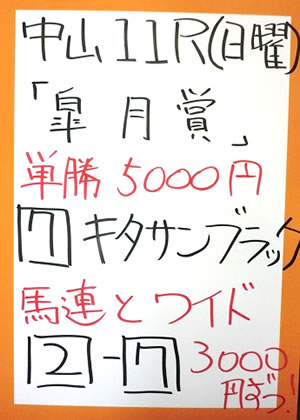 中山11R(日曜)
「皐月賞」
単勝5000円
7 キタサンブラック
馬連とワイド
2-7 3000
円ずつ!